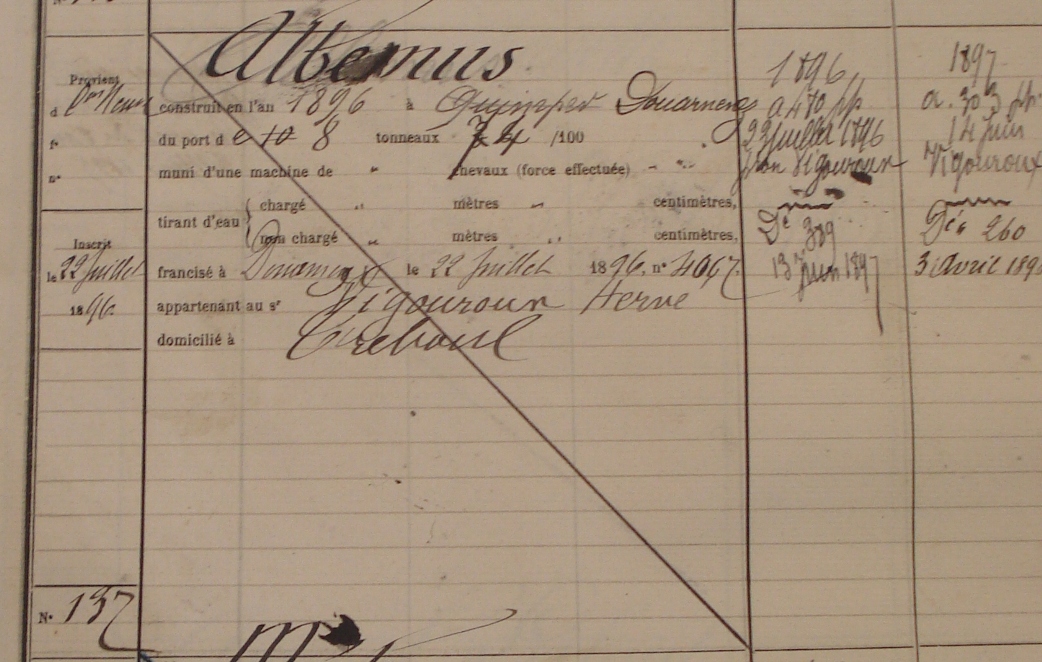 Provient
d
construit en l'an 1896 à Quimper Douarnenez
f°
du port de 10 8 tonneaux 74 /100
n°
muni d'une machine de " chevaux (force effectuée) "
tirant d'eau
chargé " mètres " centimètres,
non chargé " mètres " centimètres,
Inscrit
le 22 Juillet 1896
francisé à Douarnenez le 22 Juillet 1896. n° 4067.
appartenant au sr Vigouroux Hervé
domicilié à Treboul
1896
a 470
22 Juillet 1896
Vigouroux
Dé 389
13 Juin 1897
1897
a. 303
14 Juin
Vigouroux
Dés 260
3 Avril 189
N° 137